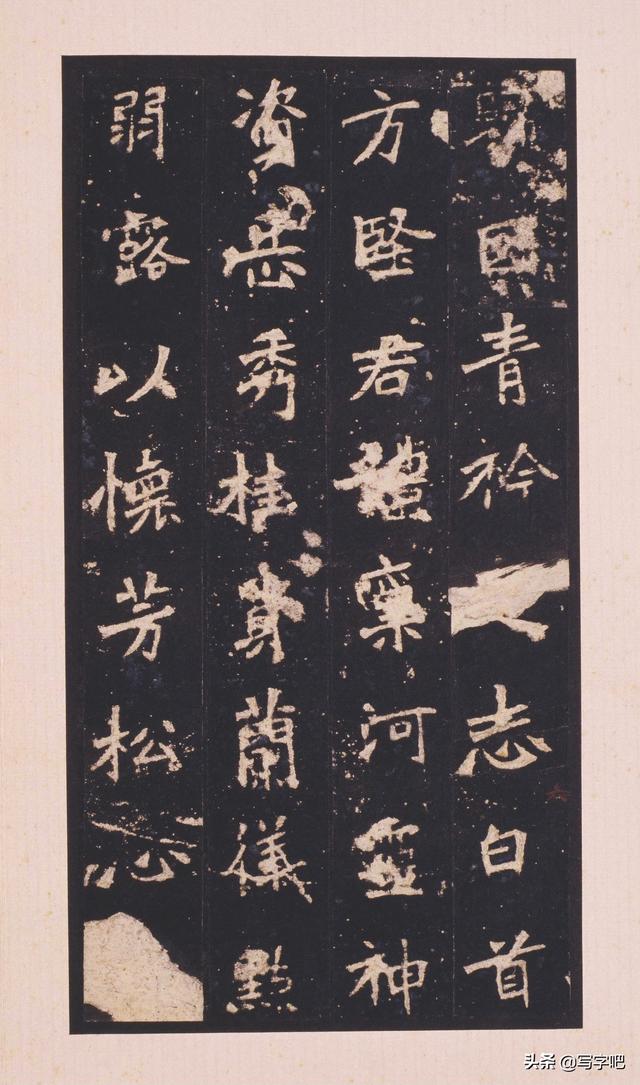 青衿志白首
方堅君體稟河靈神
資岳秀桂質蘭儀點
弱露以懷芳松心
头条 @写字吧